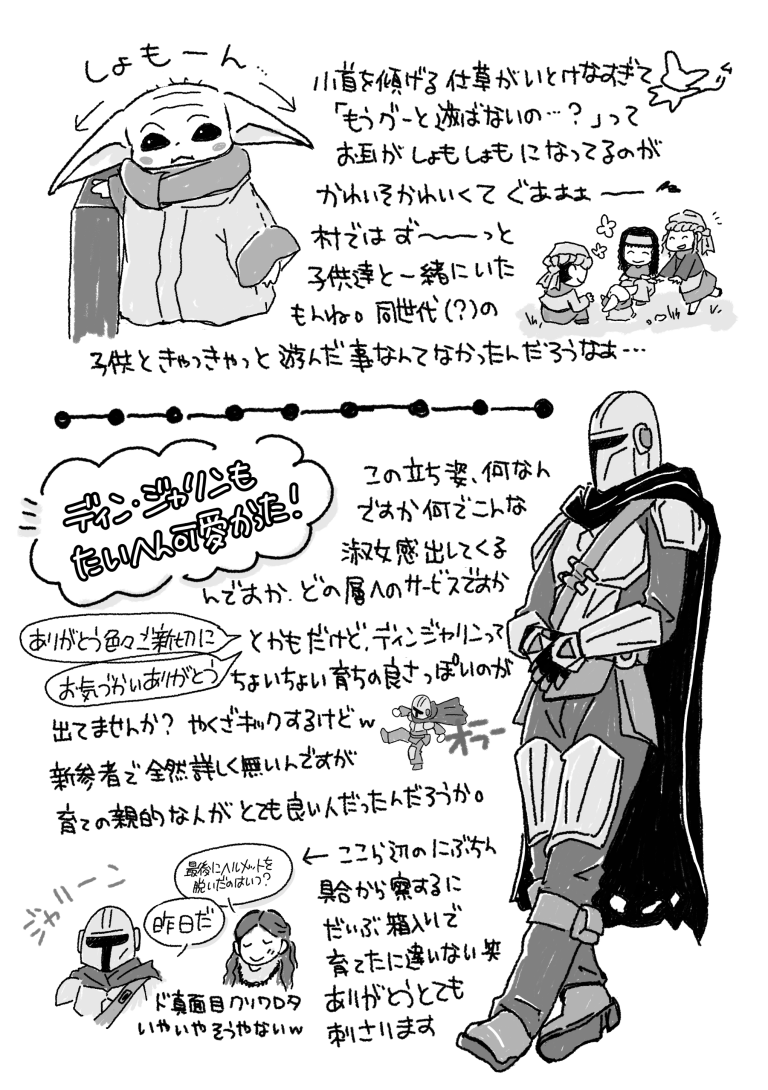 しょもーん…
小首を傾げる仕草がいとけなすぎて
「もうグーと遊ばないの…?」って
お耳がしょもしょもになってるのが
かわいそかわいくてぐあぁぁ〜〜
村ではず〜〜〜っと
子供達と一緒にいた
もんね。同世代(?)の
子供ときゃっきゃっと遊んだ事なんてなかったんだろうなぁ…
ディン・ジャリンも
たいへん可愛かった!
この立ち姿、何なん
ですか何でこんな
淑女感出してくる
んですか、どの層へのサービスですか
ありがとう色々ご親切に
お気づかいありがとう
とかもだけど、ディンジャリンって
ちょいちょい育ちの良さっぽいのが
出てませんか? やくざキックするけどw
オラー
新参者で全然詳しく無いんですが
育ての親的な人がとても良い人だったんだろうか。
ジャリーン
最後にヘルメットを
脱いだのはいつ?
昨日だ
ド真面目クソワロタ
いやいやそうやないw
← ここら辺のにぶちん
具合から察するに
だいぶ箱入りで
育てたに違いない笑
ありがとうとても
刺さります